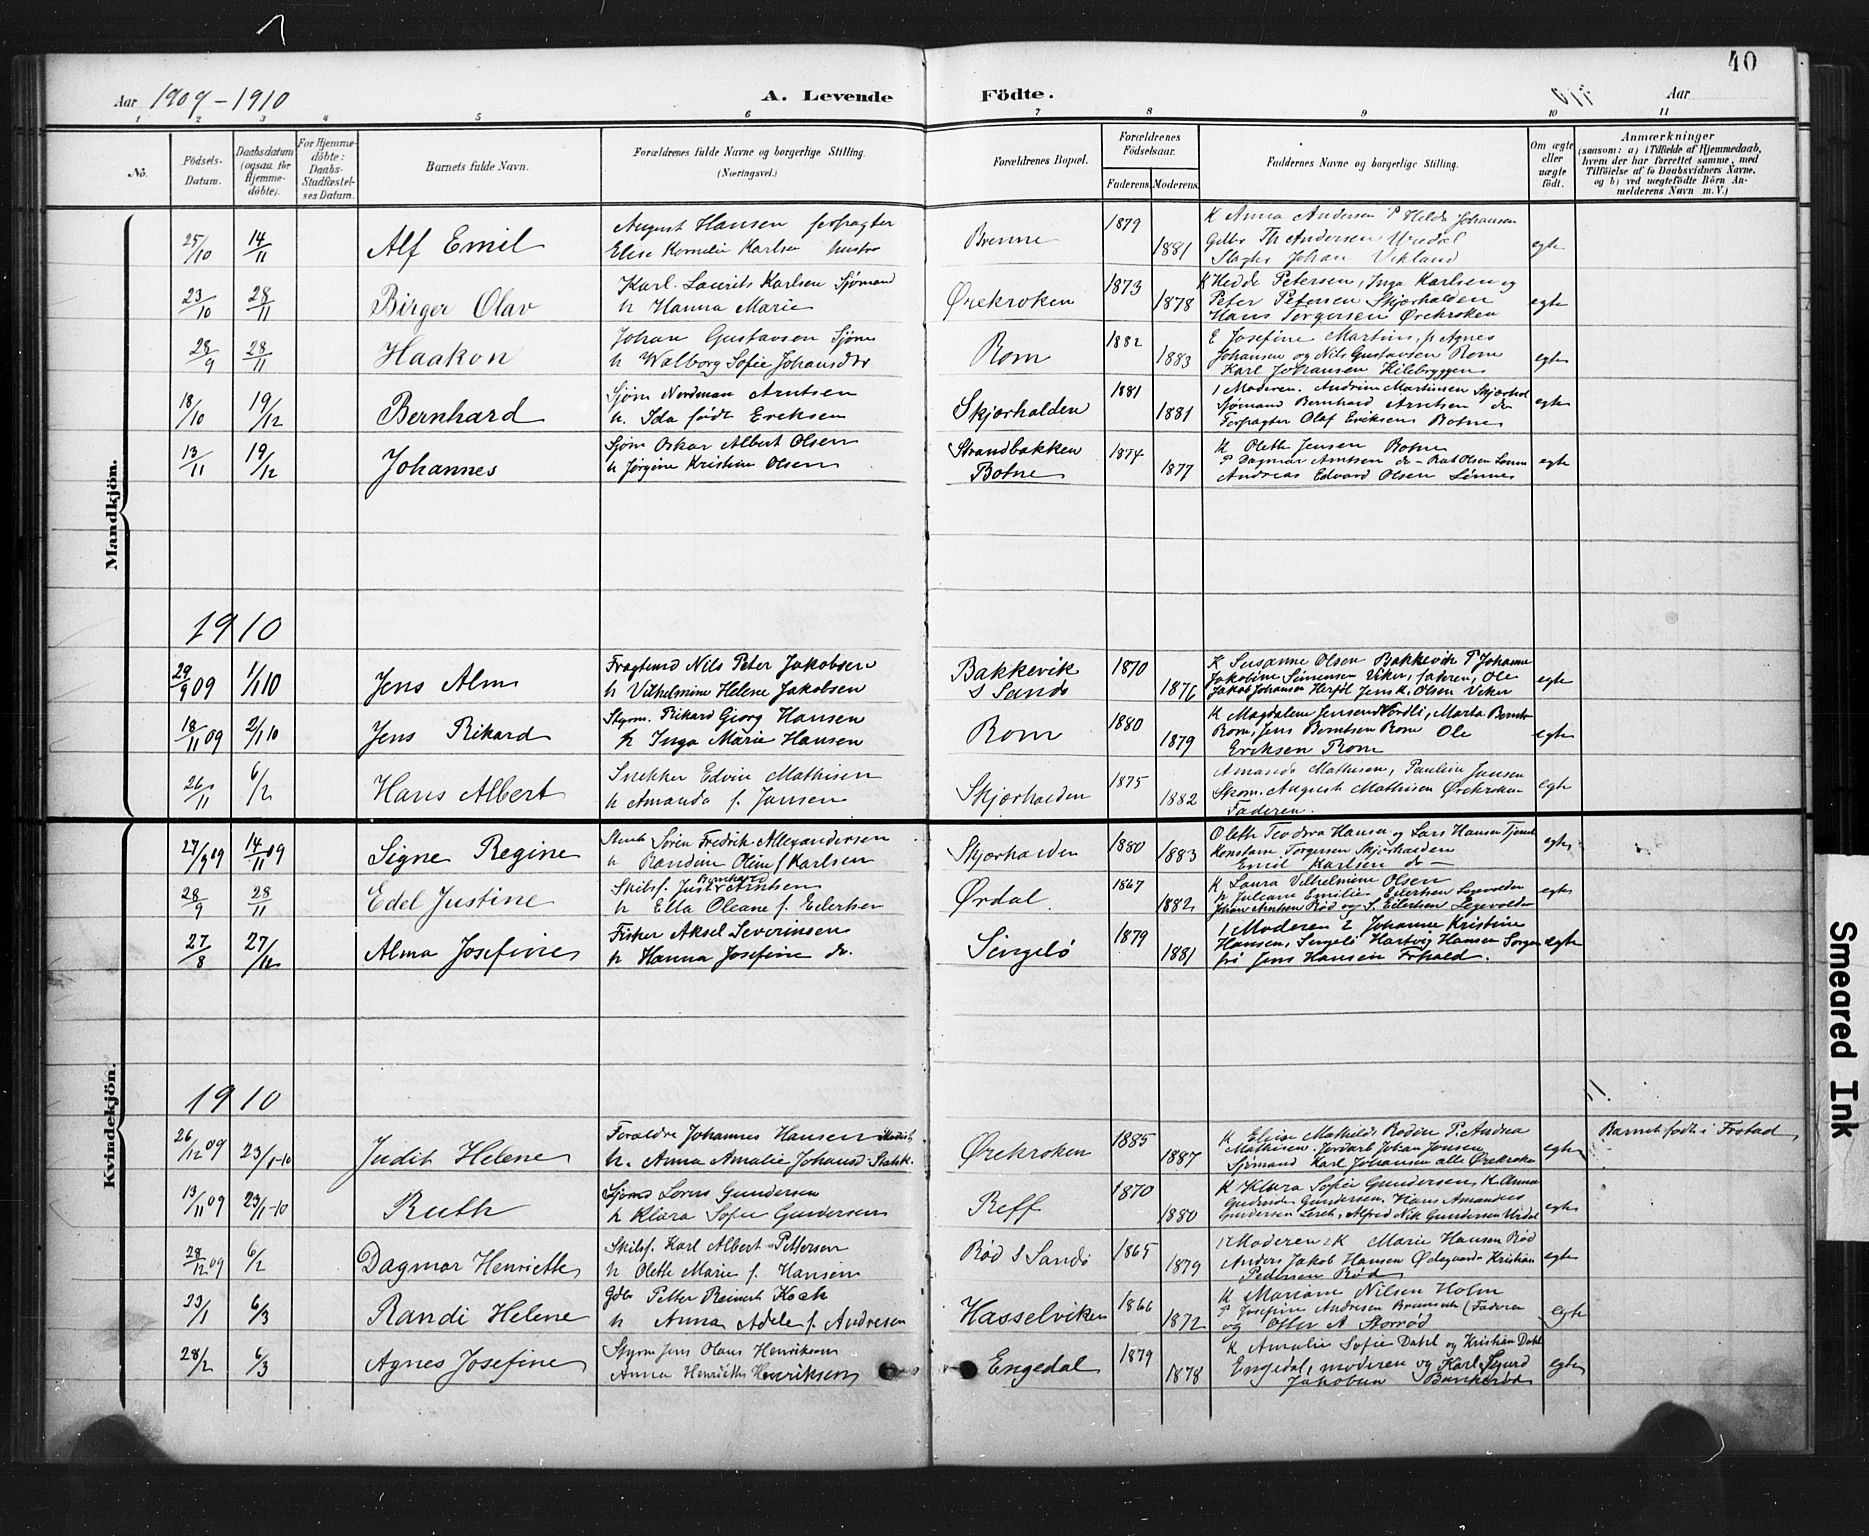 40
Aar 1909-1910 A. Levende Födte. Aar
1 2 3 4 5 6 7 8 9 10 11
No.
Födsels-Datum.
Daabsdatum (ogsaa for Hjemmedöbte).
For Hjemmedöbte: Daabs-Stadfæstelses Datum.
Barnets fulde Navn.
Forældrenes fulde Navne og borgerlige Stilling. (Næringsvei.)
Forældrenes Bopæl.
Forældrenes Födselsaar.
Faderens. Moderens.
Faddernes Navne og borgerlige Stilling.
Om ægte eller uægte födt.
Anmærkninger
(saasom: a) i Tilfælde af Hjemmedaab, hvem der har forrettet samme, med Tilföielse af to Daabsvidners Navne, og b) ved uægtefödte Börn Anmelderens Navn m. V.)
Mandkjön.
25/10 14/11 Alf Emil August Hansen forpagter Brenne 1879 K Anna Andersen P Helda Johansen
Elise Kornelie Karlsen hustro 1881 Gdbr Th Andersen Urdal egte
Johan Vikland
23/10 28/11 Birger Olav Karl Laurits Karlsen Sjømand Ørekroken 1873 K Hedde Petersen, Inga Karlsen og
h Hanna Marie 1878 Peter Petersen Skjærhalden egte
Hans Torgersen Ørekroken
28/9 28/11 Haakon Johan Gustavsen Sjøm Rom 1882 E Josefine Martins, p Agnes
h Walborg Sofie Johansdtr 1883 Johansen og Nils Gustavsen Rom egte
Karl Johansen Kilebryggen
18/10 19/12 Bernhard Sjøm Nordman Arntsen Skjærhalden 1881 1 Moderen. Andrine Martinsen
h. Ida født Eriksen 1881 Sjømand Bernhard Arntsen do egte
Forpagter Olaf Eriksen Botne
13/11 19/12 Johannes Sjøm Oskar Albert Olsen Strandbakken 1874 K Olette Jensen Botne
h Jørgine Kristine Olsen Botne 1877 P Dagmar Arntsen do egte
Andreas Edvard Olsen
1910
29/9 09 1/1 10 Jens Alm Nils Peter Jakobsen Bakkevik 1870 K Susanne Olsen Bakkevik P Johanne
h Vilhelmine Helene Jakobsen S Sandø 1876 Jakobine Simensen Viker, Ole
Jakob Johansen Herføl Jens K. Olsen Viker egte
18/11 09 2/1 10 Jens Rikard Styrm. Rikard Georg Hansen Rom 1880 K Magdalene Jensen Nordli, Marta Berntsen
h Inga Marie Hansen 1879 Rom, Jens Berntsen Rom Ole egte
Eriksen Rom
26/11 6/2 Hans Albert Snekker Edvin Mathisen Skjærhalden 1875 Amanda Mathisen, Pauline Jansen
h Amanda f. Jansen 1882 Skom. August Mathisen Ørekroken egte
Faderen.
Kvindekjön.
27/9 09 14/11 09 Signe Regine Søren Fredrik Allexandersen Skjærhalden 1880 Olette Teodora Hansen og Lars Hansen
h Randine Oline f Karlsen 1883 Konstanse Torgersen Skjærhalden egte
Emil Karlsen do
28/9 28/11 Edel Justine Skibsf. Just Bernhard Arntsen Ørdal 1867 K Laura Vilhelmine Olsen
h Ella Oleane f. Eilertsen 1882 h Juliane Emilie Eilertsen egte
Johan Arntsen Rød og S. Eilertsen
27/8 27/12 Alma Josefine Fisker Aksel Severinsen Singelø 1879 1 Moderen 2 Johanne Kristine
h Hanna Josefine do. 1881 Hansen, Singelø Hartvig Hansen egte
Jens Hansen Frhald.
1910
26/12 09 23/1-10 Judit Helene Forældre Johannes Hansen Ørekroken 1885 K Elise Mathilde P. Andrea
h. Anna Amalie Johansd 1887 Mathisen. Jordarb Johan Jonsen egte
Sjømand Karl Johansen alle Ørekroken
Barnet født i Frstad
13/11 09 23/1-10 Ruth Sjømd Lorens Gundersen Reff 1870 K Klara Sofie Gundersen, K Anna
h Klara Sofie Gundersen 1880 Gundersen. Hans Amandus egte
Gundersen Alfred Nik Gundersen
28/12 09 6/2 Dagmar Henriette Skibsf. Karl Albert Pettersen Rød S Sandø 1865 1 Moderen 2 K Marie Hansen Rød
h Olette Marie f. Hansen 1879 Anders Jakob Hansen Ødegaard Kristian egte
Pedersen Rød
23/1 6/3 Randi Helene Gdbr Petter Reinert Kock Hasselviken 1866 K Mariane Nilsen Holm
h Anna Adele f. Andresen 1872 P Josefine Andresen egte
og Otter A Storrød
28/2 6/3 Agnes Josefine Styrm Jens Olaus Henriksen Engedal 1879 K Amalie Sofie Dahl og Kristian Dahl
Anna Henriette Henriksen 1878 Engedal, moderen og Karl Sigurd egte
Jakobsen Bankerød
Smeared Ink